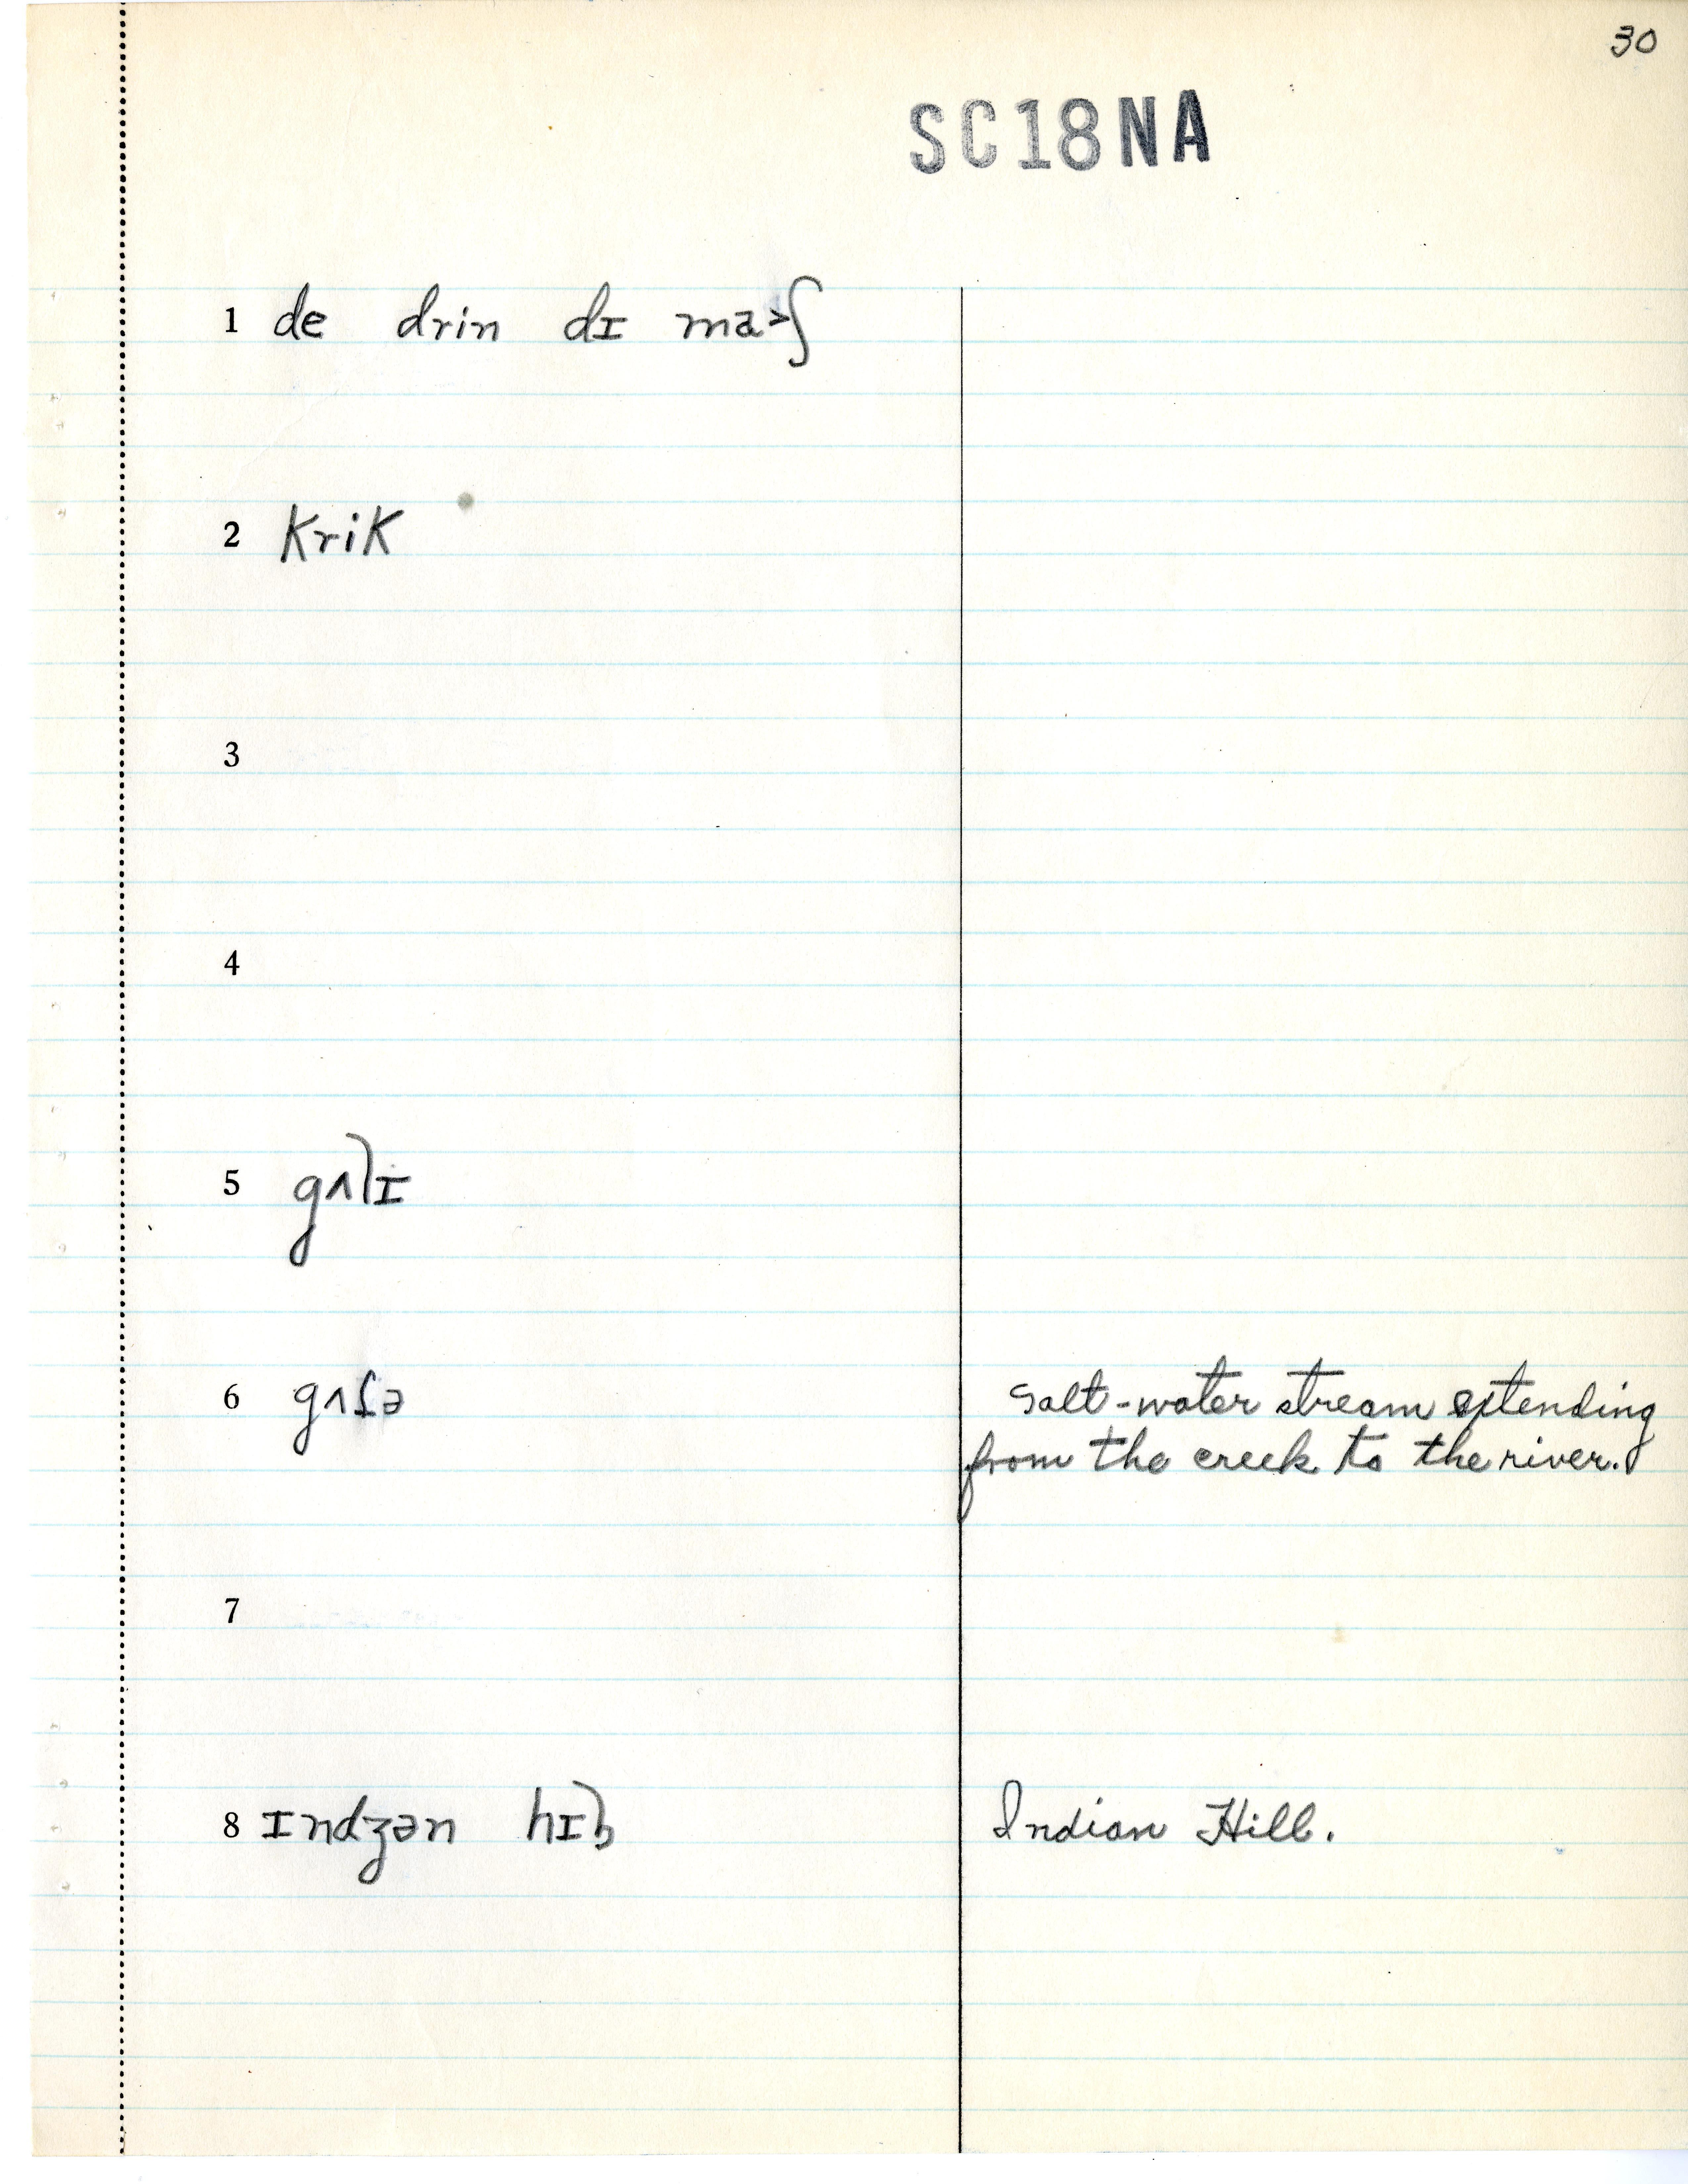 30
SC18NA
1 de drin dɪ ma˃ʃ
2 krik
3
4
5 gʌlɪ
6 salt-water stream extending
from the creek to the river.
7
8 ɪndʒən hɪl Indian Hill.